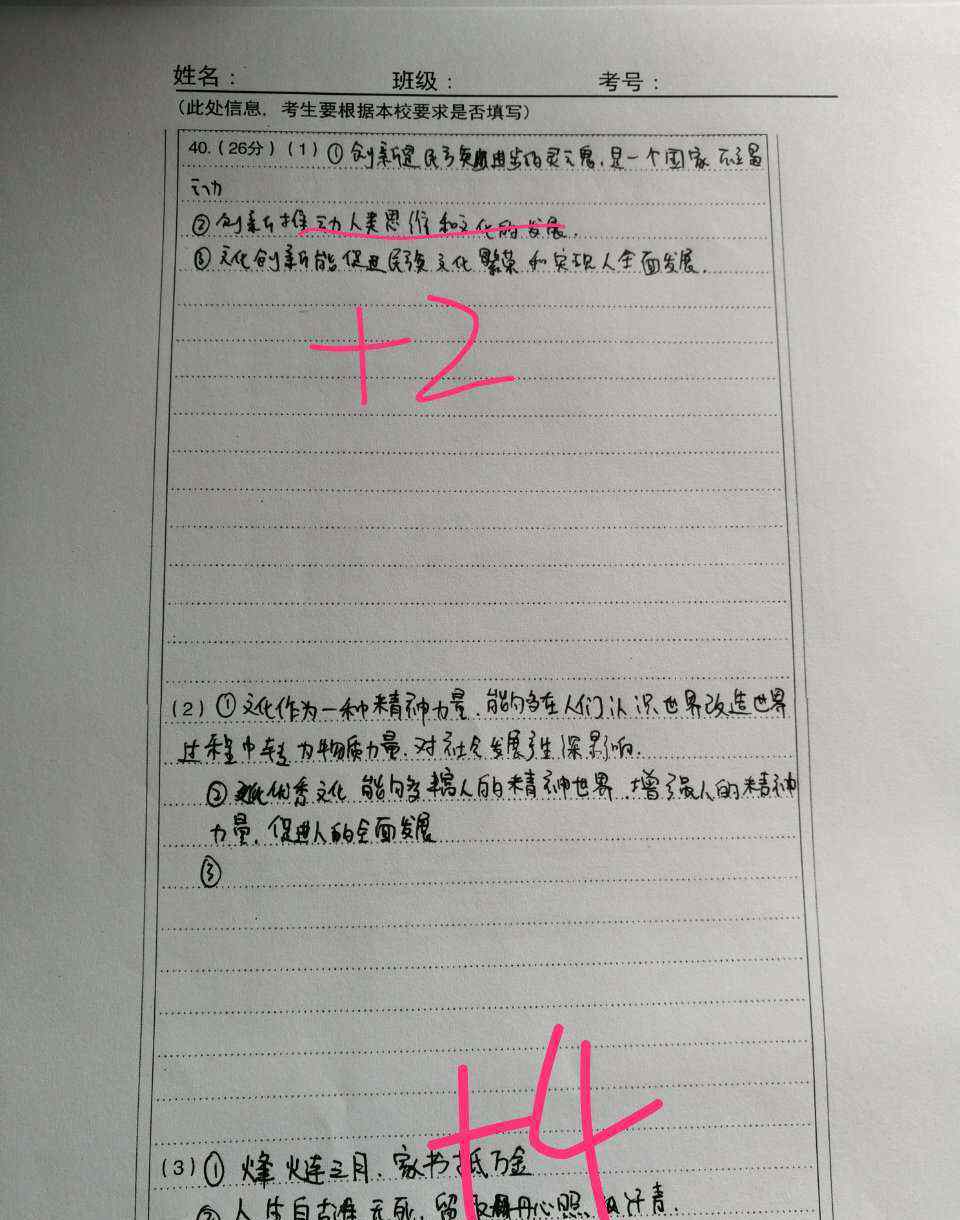 姓名： 班级： 考号：
（此处信息，考生要根据本校要求是否填写）
40.（26分）（1）①创新是民族进步的灵魂，是一个国家
动
②创新推动人类思维和文化的发展.
③文化创新能促进民族文化繁荣和实现人全面发展.
+2
（2）①文化作为一种精神力量，能够在人们认识世界改造世界
过程中转为物质力量.对社会发展产生深影响.
②优秀文化能够丰富人的精神世界.增强人的精神
力量，促进人的全面发展
③
+4
（3）①烽火连三月.家书抵万金
②人生自古谁无死，留取丹心照汗青.